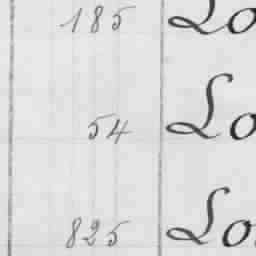 185 Lo
54 Lo
825 Lo